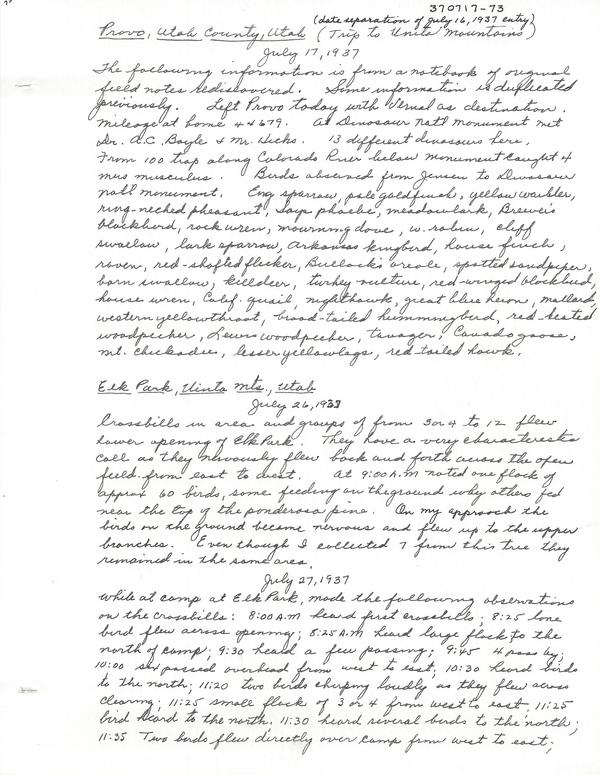 370717-73
(date separation of July 16, 1937 entry)
Provo, Utah County, Utah (Trip to Unita Mountains)
July 17, 1937
The following information is from a notebook of original
field notes rediscovered. Some information is duplicated
previously. Left Provo today with Vernal as destination.
Mileage at home 44679. At Dinosaur Nat'l monument met
Dr. A.C. Boyle & Mr. Hicks. 13 different dinosaurs here.
From 100 trap along Colorado River below monument caught 4
mus musculus. Birds observed from Jensen to Dinosaur
nat'l monument. Eng sparrow, pale goldfinch, yellow warbler,
ring-necked pheasant, Says phoebe, meadowlark, Brewer's
blackbird, rock wren, mourning dove, w. robin, cliff
swallow, lark sparrow, Arkansas kingbird, house finch,
raven, red-shafted flicker, Bullock's oreole, spotted sandpiper,
barn swallow, killdeer, turkey vulture, red-winged blackbird,
house wren, Calif. quail, nighthawk, great blue heron, mallard,
western yellowthroat, broad-tailed hummingbird, red-
woodpecker, Lewis woodpecker, tanager, Canada goose,
mt. chickadee, lesser yellowlegs, red-tailed hawk.
Elk Park, Uinta Mts., Utah
July 26, 1937
Crossbills in area and groups of from 3 or 4 to 12 flew
lower opening of Elk Park. They have a very characteristic
call as they nervously flew back and forth across the open
field from east to west. At 9:00 A.M noted one flock of
approx 60 birds, some feeding on the ground why others fed
near the top of the ponderosa pine. On my approach the
birds on the ground became nervous and flew up to the upper
branches. Even though I collected 7 from this tree they
remained in the same area.
July 27, 1937
While at camp at Elk Park, made the following observations
on the crossbills: 8:00 A.M heard first crossbills; 8:25 lone
bird flew across opening; 8:25 A.M heard large flock to the
north of camp; 9:30 heard a few passing; 9:45 4 pass by;
10:00 six passed overhead from west to east; 10:30 heard birds
to the north; 11:20 two birds chirping loudly as they flew across
clearing; 11:25 small flock of 3 or 4 from west to east; 11:25
bird heard to the north. 11:30 heard several birds to the north;
11:35 Two birds flew directly over camp from west to east;